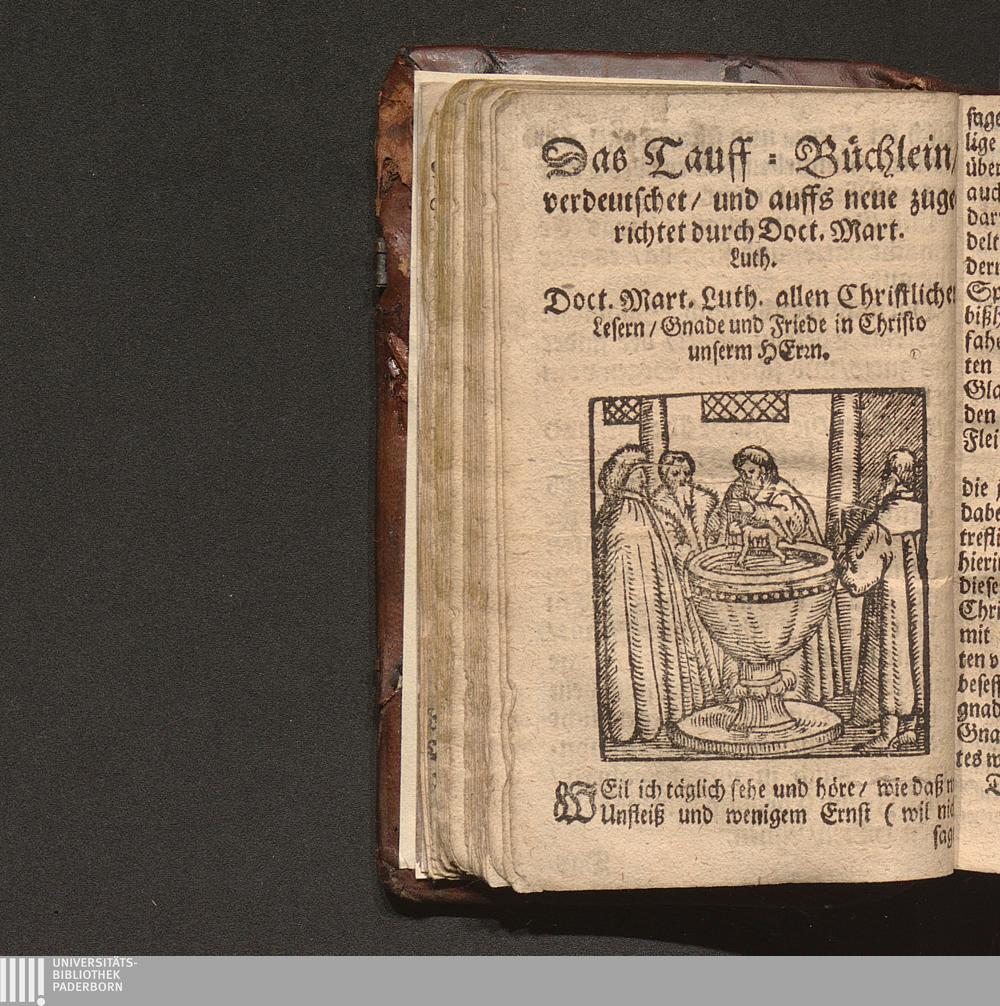 Das Tauff-Büchlein/
verdeutschet/ und auffs neue zuge
richtet durch Doct. Mart.
Luth.
Doct. Mart. Luth. allen Christliche
Lesern/ Gnade und Friede in Christo
unserm HErrn.
WEil ich täglich sehe und höre/ wie daß
Unfleiß und wenigem Ernst (wil nic
sag
sage
lige
über
auch
dar
delt
dern
Sp
bißh
fahe
ten
Gla
den
Flei
die j
dabe
trefli
hieri
diese
Chri
mit
ten v
besess
gnad
Gna
tes w
UNIVERSITÄTS-
BIBLIOTHEK
PADERBORN